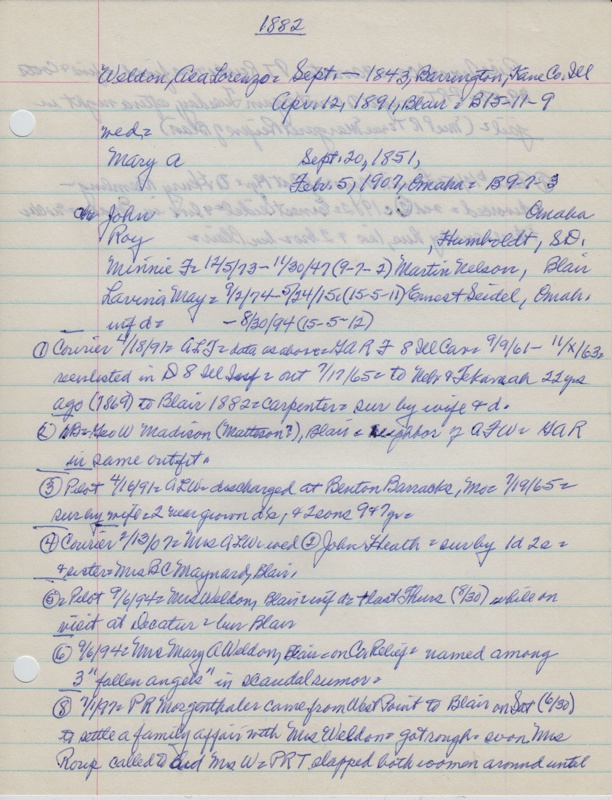 1882
Weldon, Asa Lorenzo = Sept. — 1843, Barrington, Kane Co. Ill
Apr. 12, 1891, Blair = B15-11-9
med =
Mary A Sept. 20, 1851,
Feb. 5, 1907, Omaha = B9-7-3
ch John Omaha
Roy , Humboldt, S.D.
Minnie F = 12/5/73 - 11/30/47 (9-7-2) Martin Nelson, Blair
Lavinia May = 9/2/74 - 5/24/15 = (15-5-11) Ernest Seidel, Omah.
inf d = - 8/30/94 (15-5-12)
① Courier 4/18/91 = data as above = GAR F 8 Ill Cav = 9/9/61 - 11/x/63 =
reenlisted in D 8 Ill Inf = out 7/17/65 = to Nebr & Tekamah 22 yrs
ago (1869) to Blair 1882 = carpenter = sur by wife & d.
② Geo W Madison (Matteson?), Blair = neighbor of = GAR
in same outfit.
③ Pilot 4/16/91 = ALW = discharged at Benton Barracks, Mo = 7/19/65 =
sur by wife = 2 near grown d's, & 2 sons 9 & 7 yr =
④ Courier 2/13/07 = Mrs ALW = wed ② John Heath = sur by 1d 2s =
& sister = Mrs BC Maynard, Blair.
⑤ = Pilot 9/6/94 = Mrs Weldon, Blair = inf d = last Thurs (8/30) while on
visit at Decatur = bur Blair
⑥ 9/6/94 = Mrs Mary A Weldon, Blair = on Co Relief = named among
3 "fallen angels" in scandal rumor =
⑧ 7/1/97 = PR Morgenthaler came from West Point to Blair on Sat (6/30)
to settle a family affair with Mrs Weldon = got rough = soon Mrs
called to Mrs W = PRT slapped both women around until